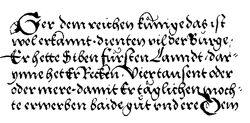 Ser dem reichen kunige das ist
wol erkannt · dienten vil der Burge ·
Er hette Siben fursten Lanndt · dar-
ynne het er Recken · Viertausent oder
oder mere · damit Er taglichen moch-
te erwerben baide gut vnd ere Dem